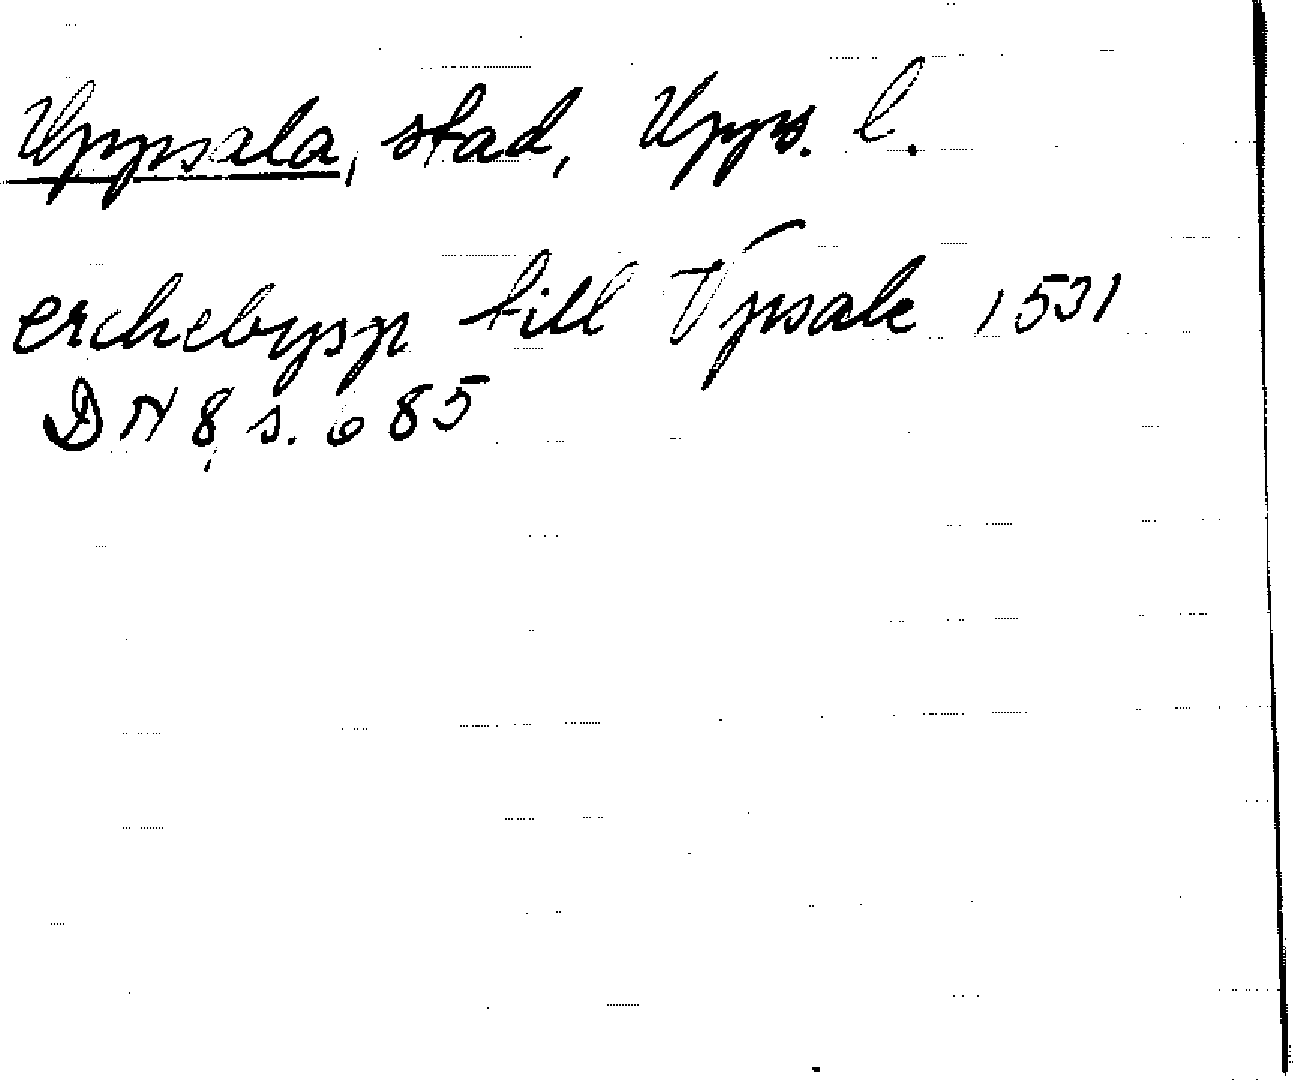 Uppsala, stad, Upps. l.
erchebysp till Vpsale 1531
DN 8, s. 685